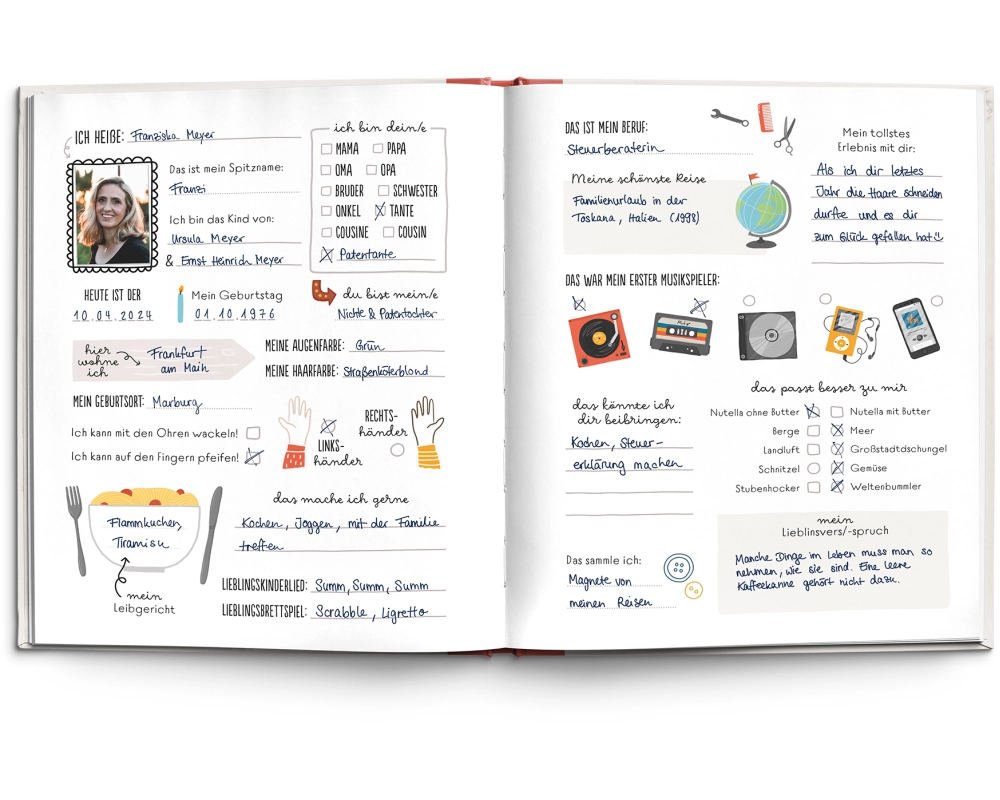 ICH HEIẞE: Franziska Meyer
Das ist mein Spitzname:
Franzi
Ich bin das Kind von:
Ursula Meyer
& Ernst Heinrich Meyer
ich bin dein/e
MAMA PAPA
OMA OPA
BRUDER SCHWESTER
ONKEL TANTE
COUSINE COUSIN
Patentante
HEUTE IST DER
10.04.2024
Mein Geburtstag
01.10.1976
du bist mein/e
Nichte & Patentochter
hier
wohne
ich
Frankfurt
am Main
MEINE AUGENFARBE: Grün
MEINE HAARFARBE: Straßenköterblond
MEIN GEBURTSORT: Marburg
Ich kann mit den Ohren wackeln!
Ich kann auf den Fingern pfeifen!
LINKS-
händer
RECHTS-
händer
Flammkuchen,
Tiramisu
mein
Leibgericht
das mache ich gerne
Kochen, Joggen, mit der Familie
treffen
LIEBLINGSKINDERLIED: Summ, Summ, Summ
LIEBLINGSBRETTSPIEL: Scrabble, Ligretto
DAS IST MEIN BERUF:
Steuerberaterin
Meine schönste Reise
Familienurlaub in der
Toskana, Italien (1998)
Mein tollstes
Erlebnis mit dir:
Als ich dir letztes
Jahr die Haare schneiden
durfte und es dir
zum Glück gefallen hat
DAS WAR MEIN ERSTER MUSIKSPIELER:
MIX
das könnte ich
dir beibringen:
Kochen, Steuer-
erklärung machen
das passt besser zu mir
Nutella ohne Butter Nutella mit Butter
Berge Meer
Landluft Großstadtdschungel
Schnitzel Gemüse
Stubenhocker Weltenbummler
Das sammle ich:
Magnete von
meinen Reisen
mein
Lieblinsvers/-spruch
Manche Dinge im Leben muss man so
nehmen, wie sie sind. Eine leere
Kaffeekanne gehört nicht dazu.